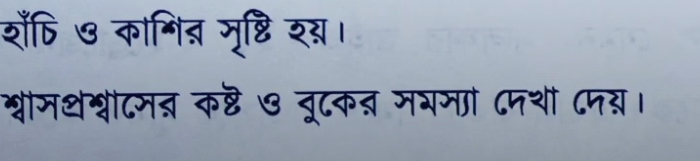 হাঁচি ও কাশির সৃষ্টি হয়।
শ্বাসপ্রশ্বাসের কষ্ট ও বুকের সমস্যা দেখা দেয়।